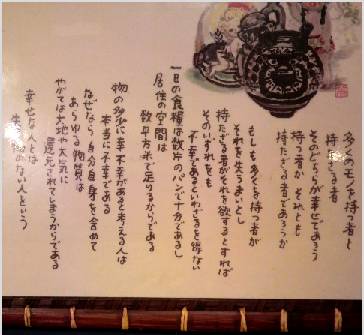 多くのモノを持つ者と
持たざる者
そのどちらが幸せであろう
持つ者か それとも
持たざる者であろうか
もしも多くを持つ者が
それを失うまいとし
持たざる者がそれを欲するとすれば
そのいずれをも
不幸であるといわざるを得ない
一日の食糧は数片のパンで十分であるし
居住の空間は
数平方米で足りるからである
物の多少に幸不幸があると考える人は
本当に不幸である
なぜなら自分自身を含めて
あらゆる物質は
やがては大地や大気に
還元されてしまうからである
幸せな人とは
失う物のない人という